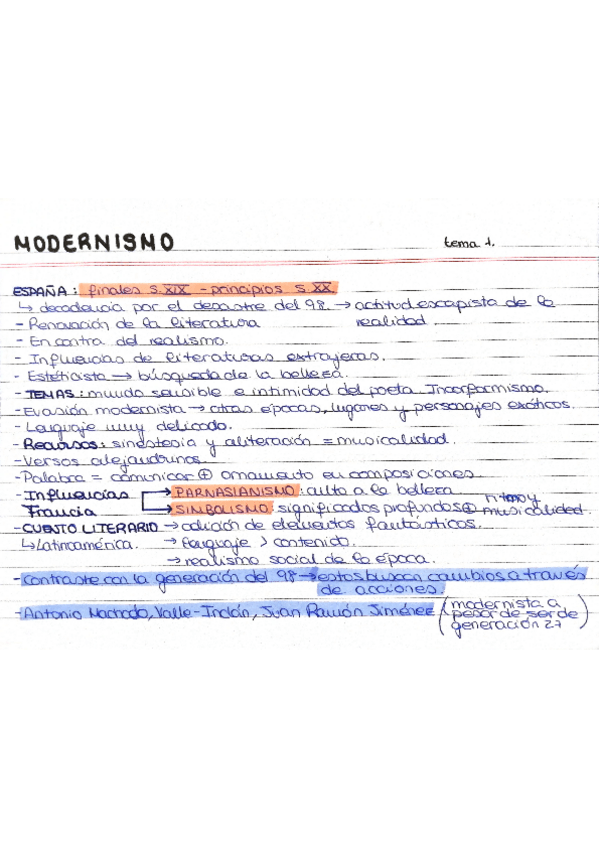 MODERNISMO tema 1.
ESPAÑA: finales S.XIX - principios S.XX.
↳ decadencia por el desastre del 98. → actitud escapista de la
- Renovación de la literatura realidad.
- En contra del realismo.
- Influencias de literaturas extrajeras.
- Estéticista → búsqueda de la belleza.
- TEMAS: mundo sensible e intimidad del poeta. Inconformismo.
- Evasión modernista → otras épocas, lugares y personajes exóticos.
- Lenguaje muy delicado.
- Recursos: sinestesia y aliteración = musicalidad.
- Versos alejandrinos
- Palabra = comunicar ⊕ ornamento en composiciones
- Influencias → PARNASIANISMO: culto a la belleza
Francia → SIMBOLISMO: significados profundos ⊕ ritmo y musicalidad.
- CUENTO LITERARIO → adición de elementos fantásticos.
↳ Latinoamérica. → lenguaje > contenido.
→ realismo social de la época.
- contraste con la generación del 98 → estos buscan cambios a través
de acciones.
- Antonio Machado, Valle-Inclán, Juan Ramón Jiménez (modernista a
pesar de ser de
generación 27)